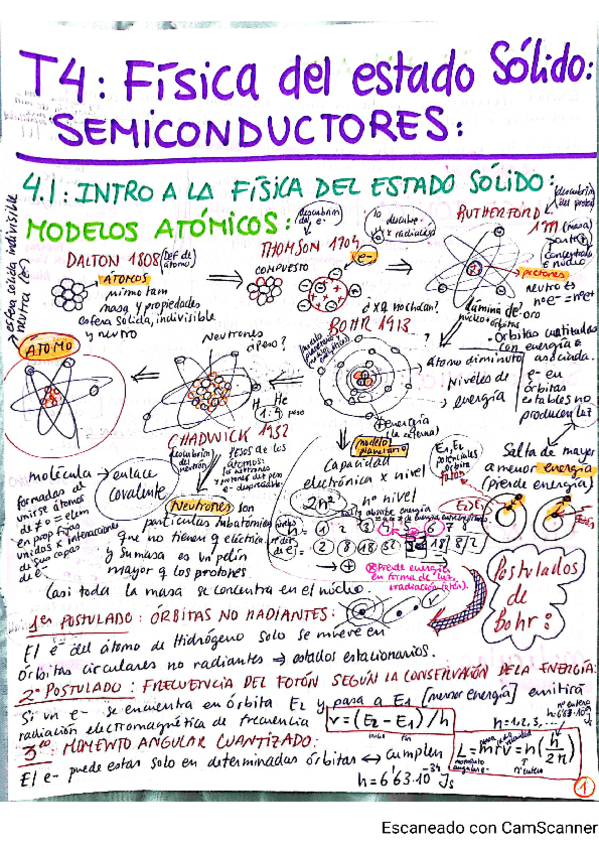 T4: Física del estado Sólido:
SEMICONDUCTORES:
4.1: INTRO A LA FÍSICA DEL ESTADO SÓLIDO:
MODELOS ATÓMICOS:
esfera sólida indivisible
neutra (e-)
DALTON 1808 (DEF de átomo)
ÁTOMOS
mismo tam
masa y propiedades
esfera sólida, indivisible
y neutro
descubrim del e-
THOMSON 1904
COMPUESTO
e-
no descubre
radiales
¿x q no chocan?
RUTHERFORD
1911 (masa)
descubrim del protón
concentrada
núcleo
protones
neutro es
nºe- = nºe+
lámina de oro
núcleo + órbitas
Orbitas cuantizadas
con energía
asociada.
ÁTOMO
Neutrones
¿peso?
H He
1:4 peso
BOHR 1913
átomo diminuto
Niveles de
energía
e- en
órbitas
estables no
producen luz
+ energía
(la externa)
modelo
planetario
CHADWICK 1932
descubrim del neutrón
pesos de los
átomos:
molécula → enlace
covalente
formados de
unirse átomos
d ≠ o = elem
en prop fijas
unidos x interacciones
de sus capas
de e-
Neutrones son
partículas subatómicas
que no tienen q eléctrica.
y su masa es un pelín
mayor q los protones
Casi toda la masa se concentra en el núcleo.
Capacidad
electrónica x nivel
2n² nº nivel
E1, E2
potenciales
órbita
fotón
absorbe energía
1 2 3 4 5 6 7
2 8 18 32 32 18 8 2
Pierde energía
en forma de luz,
irradiación (fotón).
Salta de mayor
a menor energía
(pierde energía)
E2>E1
Postulados
de
Bohr:
1er POSTULADO: ÓRBITAS NO RADIANTES:
El e- del átomo de Hidrógeno solo se mueve en
Órbitas circulares no radiantes ⇒ estados estacionarios.
2º POSTULADO: FRECUENCIA DEL FOTÓN SEGÚN LA CONSERVACIÓN DE LA ENERGÍA:
Si un e- se encuentra en órbita E2 y pasa a E1 [menor energía] emitirá
radiación electromagnética de frecuencia ν = (E2 - E1)/h
n=1,2,3,...
nº entero
3ro: MOMENTO ANGULAR CUANTIZADO:
El e- puede estar solo en determinadas órbitas ↔ cumplen L = mrv = n(h/2π)
momento angular e-
nº entero
h = 6'63·10^-34 Js
1
Escaneado con CamScanner